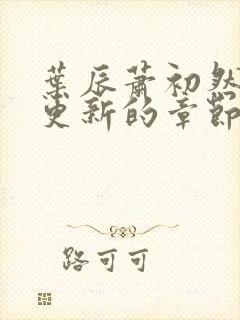 葉辰蕭初然
更新的章節
路可可